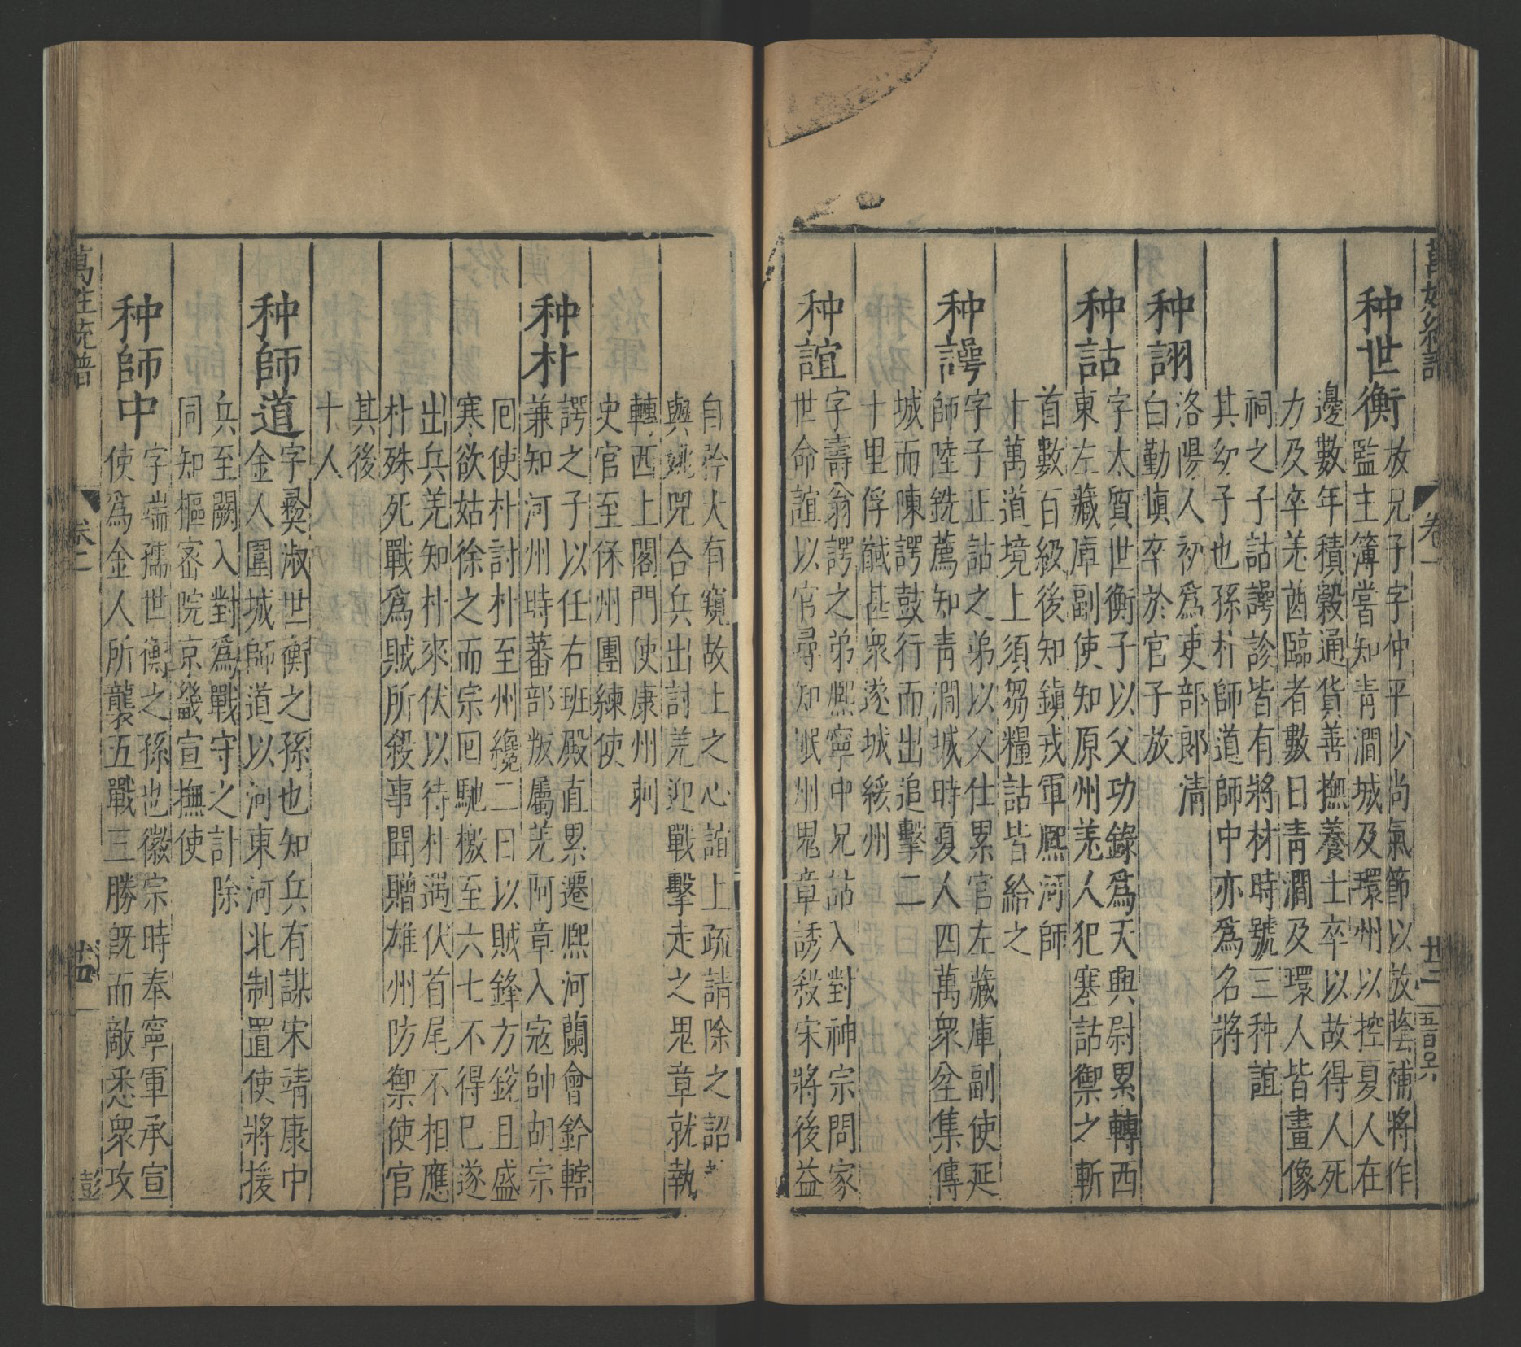 萬姓統譜
卷二
种世衡
放兄子字仲平少尚氣節以放蔭補將作
監主簿嘗知青澗城及環州以控夏人在
邊數年積穀通貨善撫養士卒以故得人死
力及卒羌酋臨者數日青澗及環人皆畫像
祠之子詁諤診皆有將材時號三种誼
其幼子也孫朴師道師中亦爲名將
种詡
洛陽人初爲吏部郎清
白勤愼卒於官子放
种詁
字太質世衡子以父功錄爲天興尉累轉西
東左藏庫副使知原州羌人犯塞詁禦之斬
首數百級後知鎮戎軍熈河師
十萬道境上須芻糧詁皆給之
种諤
字子正詁之弟以父仕累官左藏庫副使延
師陸銑薦知青澗城時夏人四萬衆坌集傳
城而陳諤鼓行而出追擊二
十里俘馘甚衆遂城綏州
种誼
字壽翁諤之弟熈寧中兄詁入對神宗問家
世命誼以官尋知岷州鬼章誘殺宋將後益
自矜大有窺故土之心誼上疏請除之詔
與姚兕合兵出討羌迎戰擊走之鬼章就執
轉西上閣門使康州刺
史官至保州團練使
种朴
諤之子以任右班殿直累遷熈河蘭會鈐轄
兼知河州時蕃部叛屬羌阿章入寇帥胡宗
囘使朴討朴至州纔二日以賊鋒方銳且盛
寒欲姑徐之而宗囘馳檄至六七不得已遂
出兵羌知朴來伏以待朴遇伏首尾不相應
朴殊死戰爲賊所殺事聞贈雄州防禦使官
其後
十人
种師道
字彜淑世衡之孫也知兵有謀宋靖康中
金人圍城師道以河東河北制置使將援
兵至闕入對爲戰守之計除
同知樞密院京畿宣撫使
种師中
字端孺世衡之孫也徽宗時奉寧軍承宣
使爲金人所襲五戰三勝旣而敵悉衆攻
萬姓統譜
卷二
彭